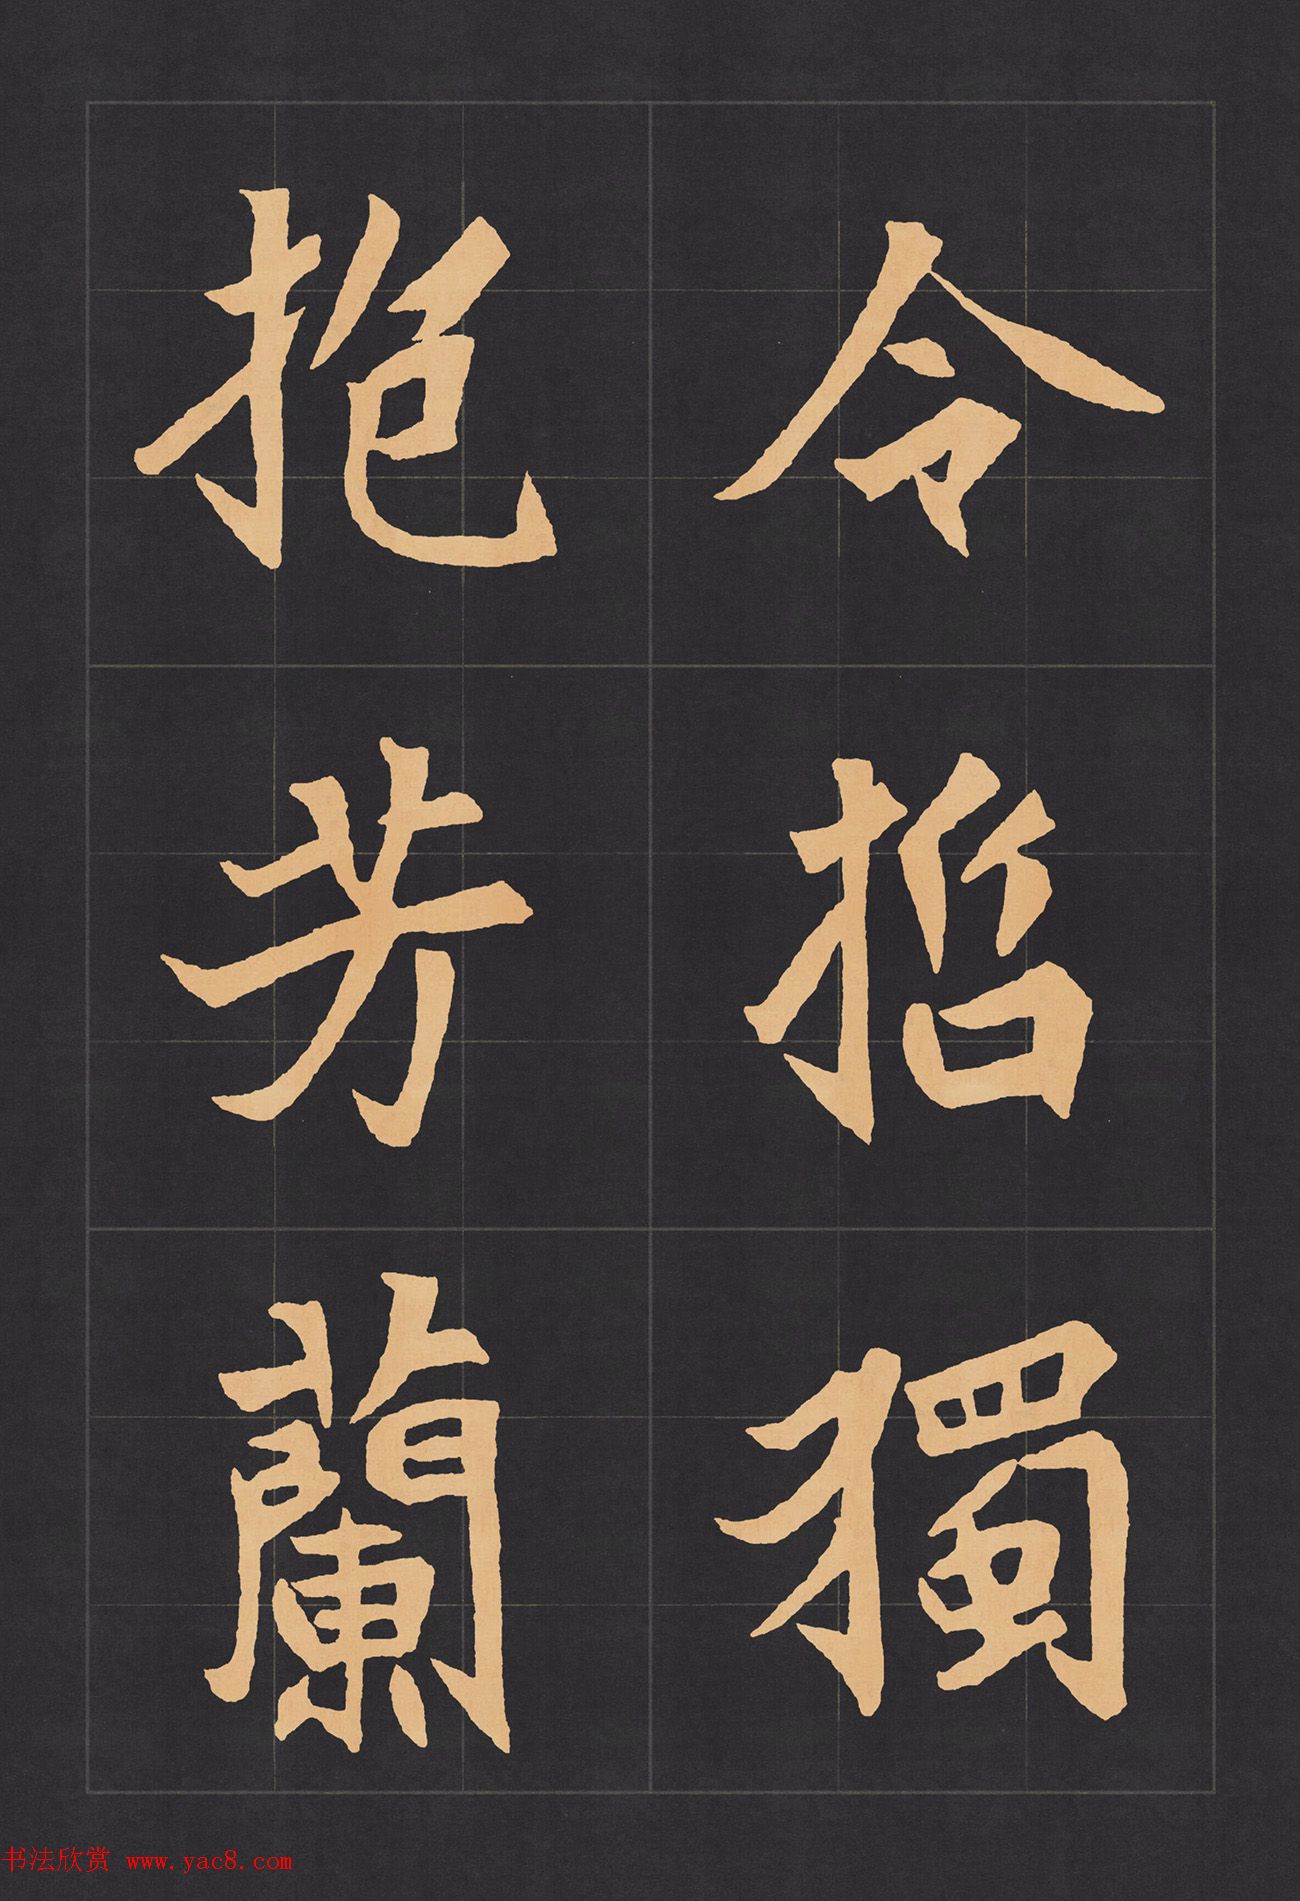 令哲獨
抱芳蘭
书法欣赏 www.yac8.com